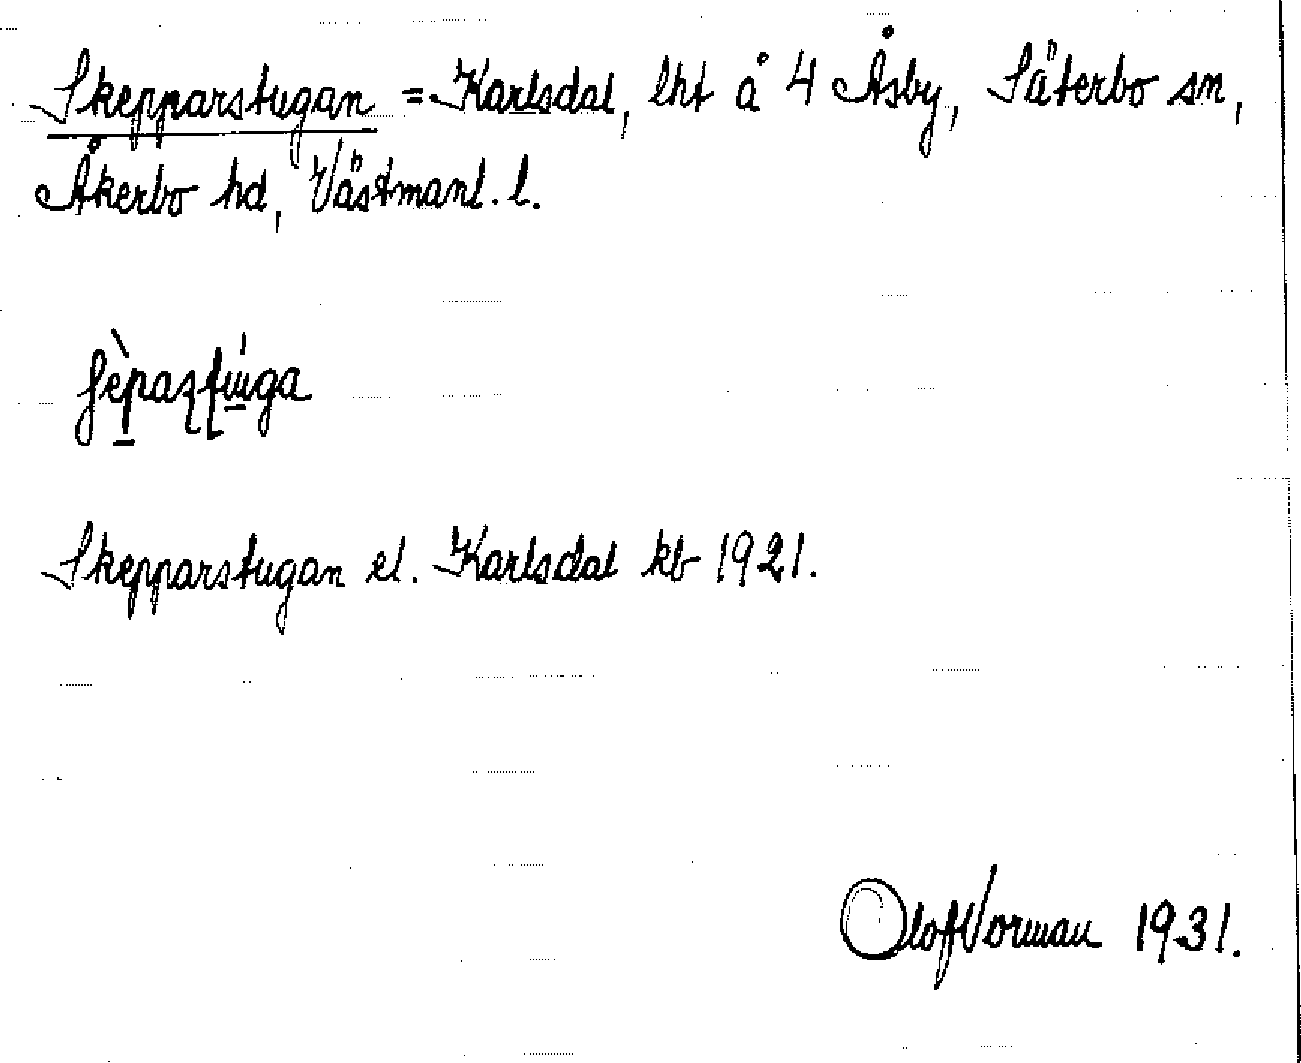 Skepparstugan = Karlsdal, lht å 4 Åsby, Säterbo sn,
Åkerbo hd, Västmanl. l.
Skepparstugan el. Karlsdal kb 1921.
Olof Norman 1931.